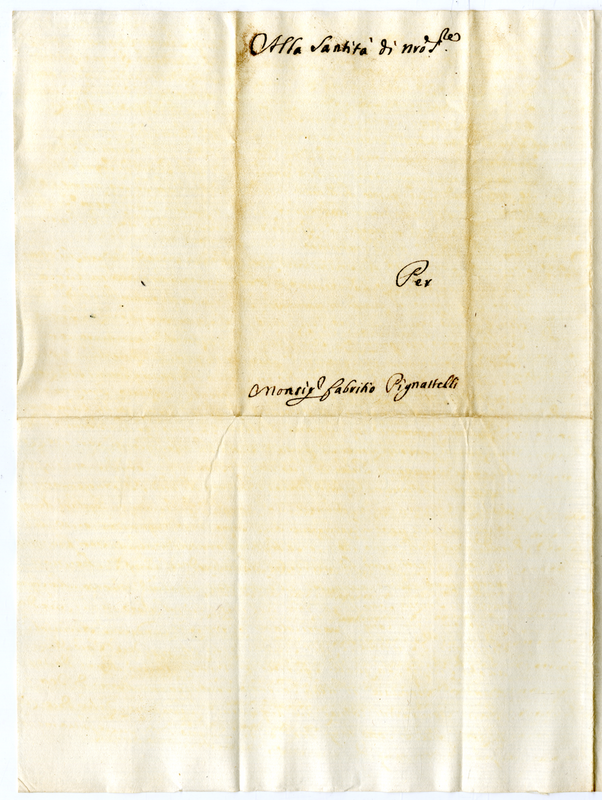 Alla Santità di nro S.re
Per
Monsigr Fabritio Pignattelli